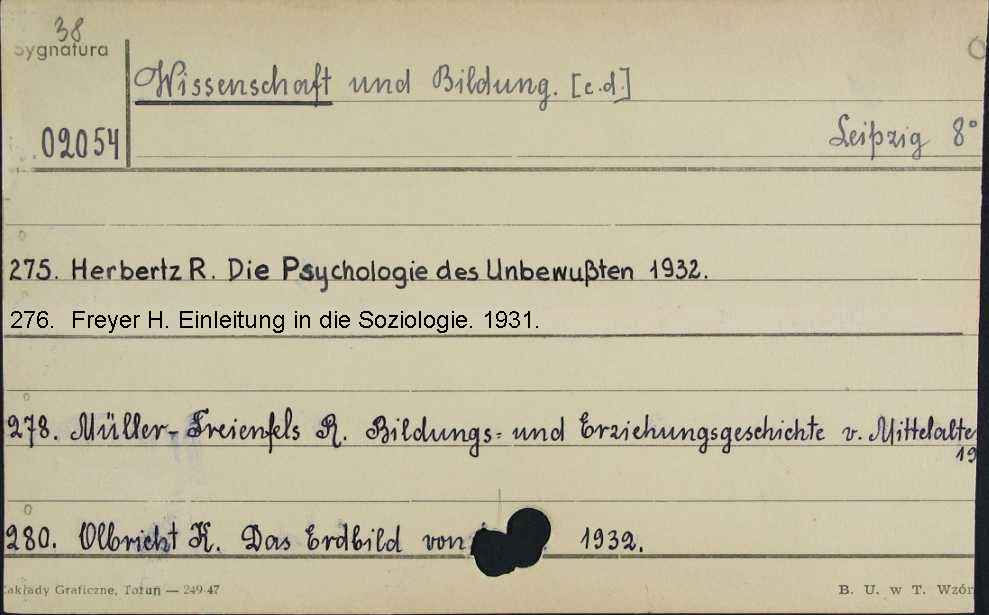 38
Sygnatura
Wissenschaft und Bildung. [c.d.]
02054
Leipzig 8°
275. Herbertz R. Die Psychologie des Unbewußten 1932.
276. Freyer H. Einleitung in die Soziologie. 1931.
278. Müller-Freienfels R. Bildungs= und Erziehungsgeschichte v. Mittelalte
19
280. Olbricht K. Das Erdbild von 1932.
akłady Graficzne, Toruń — 249 47
B. U. w T. Wzór